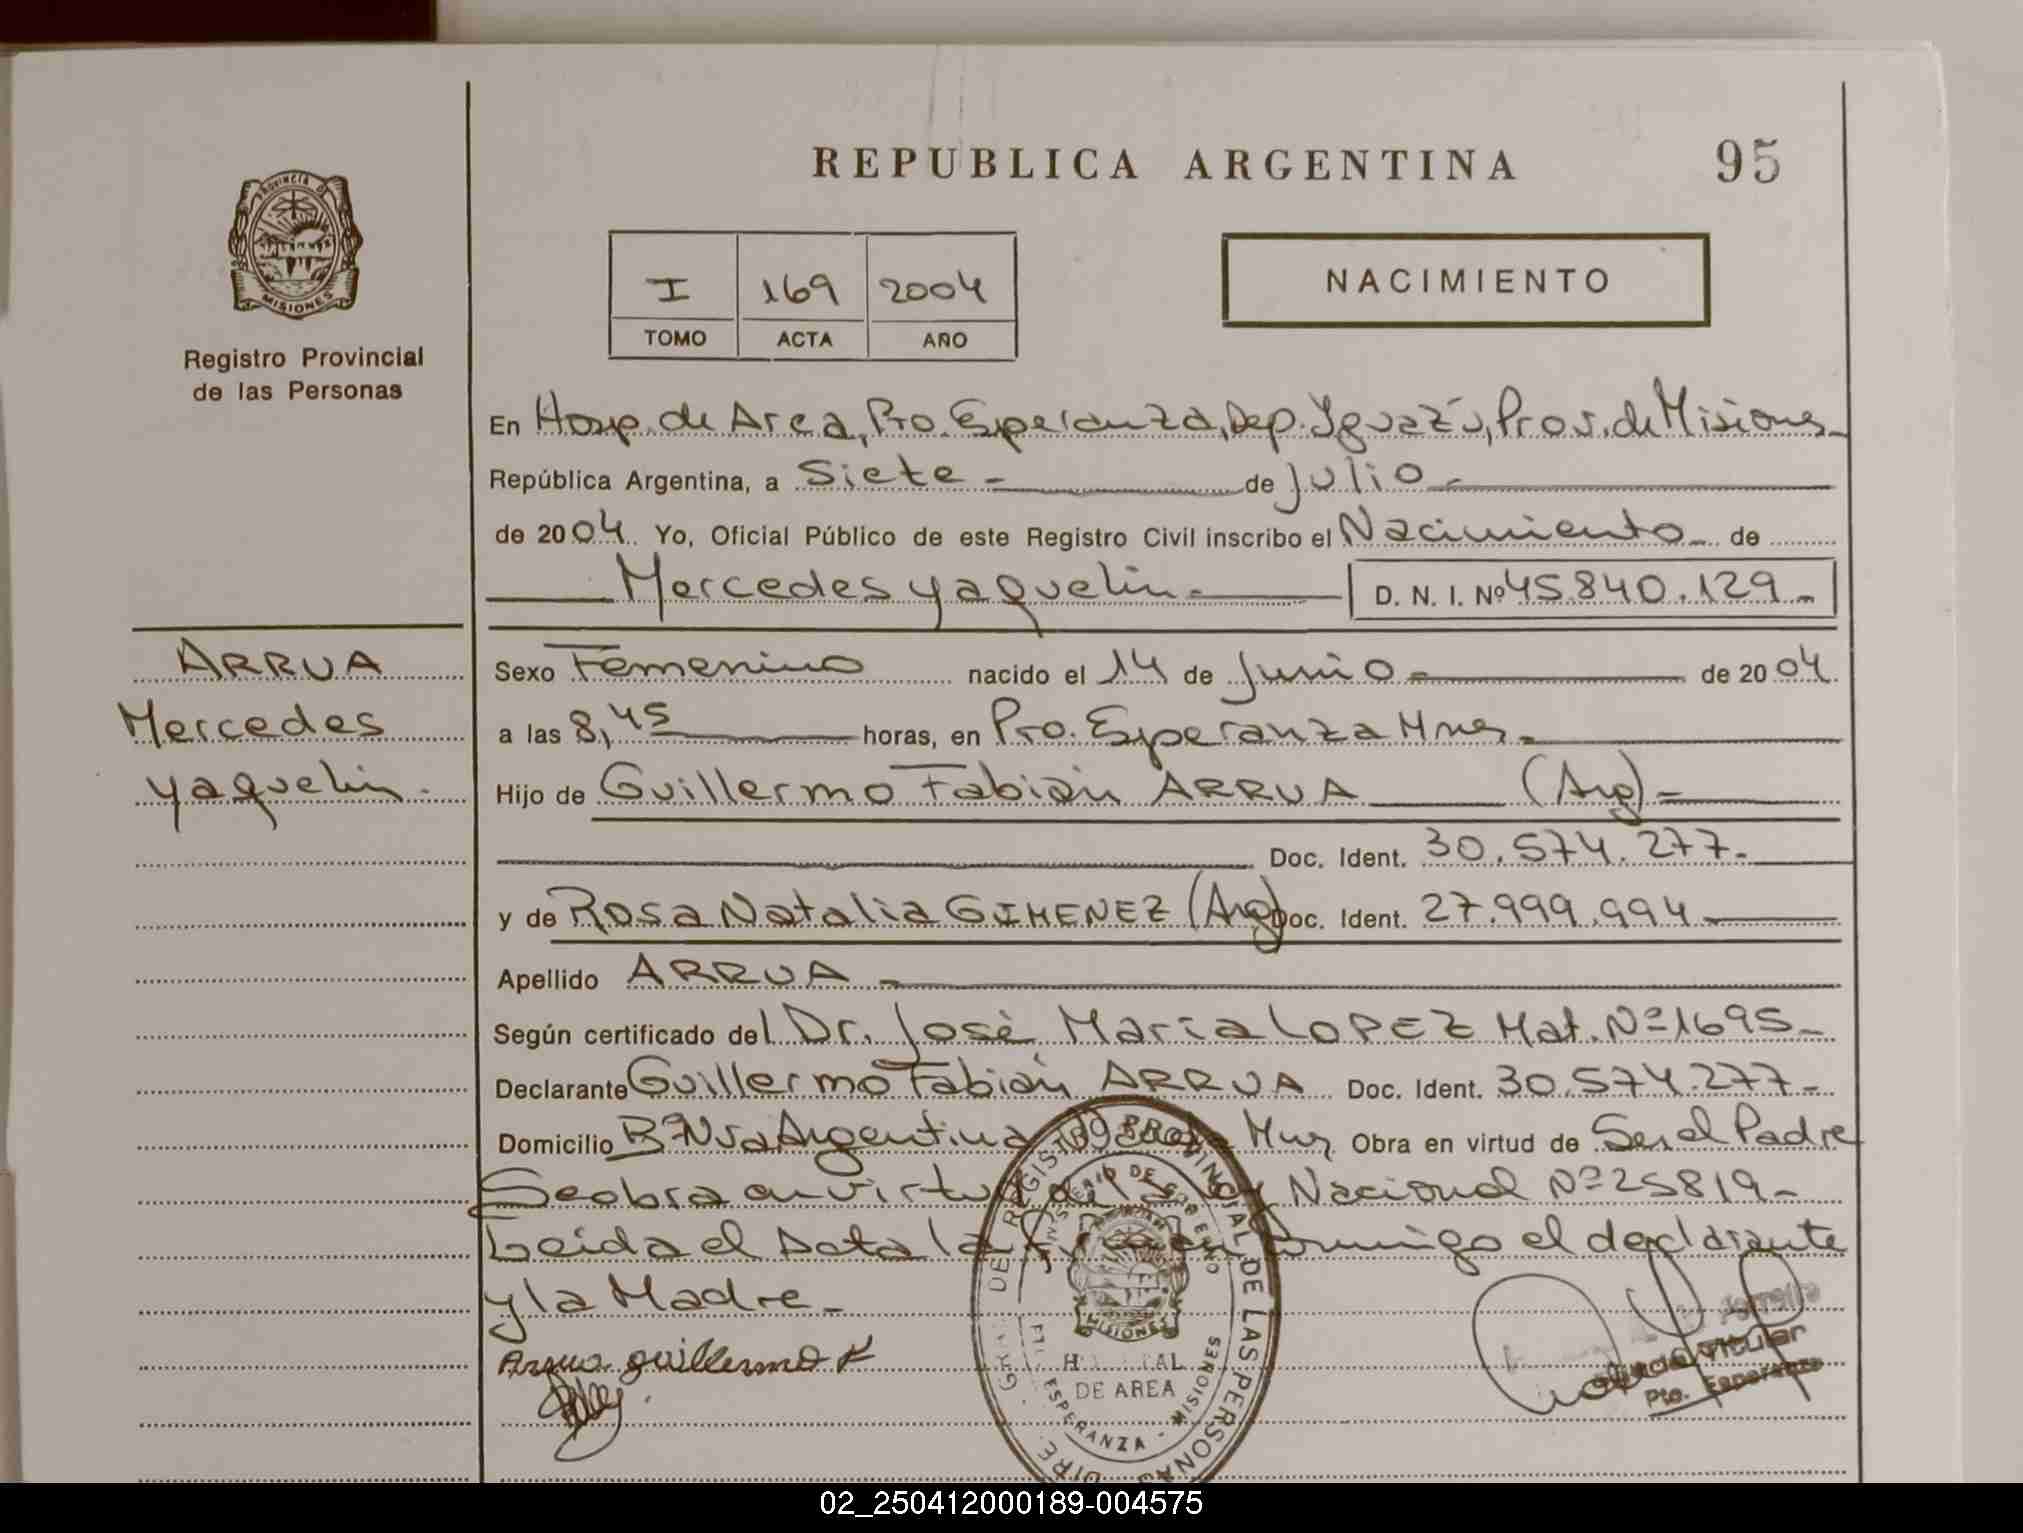 REPUBLICA ARGENTINA
95
PROVINCIA DE
MISIONES
Registro Provincial
de las Personas
I 169 2004
TOMO ACTA AÑO
NACIMIENTO
En Hosp. de Area, Pto. Esperanza, Dep. Iguazú, Prov. de Misiones
República Argentina, a Siete - de Julio -
de 2004. Yo, Oficial Público de este Registro Civil inscribo el Nacimiento de
Mercedes yaquelin.- D. N. I. Nº 45.840.129.-
ARRUA
Mercedes
yaquelin.
Sexo Femenino nacido el 14 de Junio - de 2004.
a las 8,45 horas, en Pto. Esperanza Mnes.
Hijo de Guillermo Fabián ARRUA (Arg) -
Doc. Ident. 30.574.277.
y de Rosa Natalia GIMENEZ (Arg) Doc. Ident. 27.999.994
Apellido ARRUA -
Según certificado del Dr. José María LOPEZ Mat. Nº 1695-
Declarante Guillermo Fabián ARRUA Doc. Ident. 30.574.277-
Domicilio Bº Nva Argentina Obra en virtud de Ser el Padre
Se obra en virtud de Ley Nacional Nº 25819-
Leida el Acta la conmigo el declarante
y la Madre.-
Arrua guillermo F
DE REGISTRO PROVINCIAL DE LAS PERSONAS
MINISTERIO DE GOBIERNO
MISIONES
HOSPITAL
DE AREA
PTO. ESPERANZA - MISIONES
Ferreira
Titular
Pto. Esperanza
02_250412000189-004575